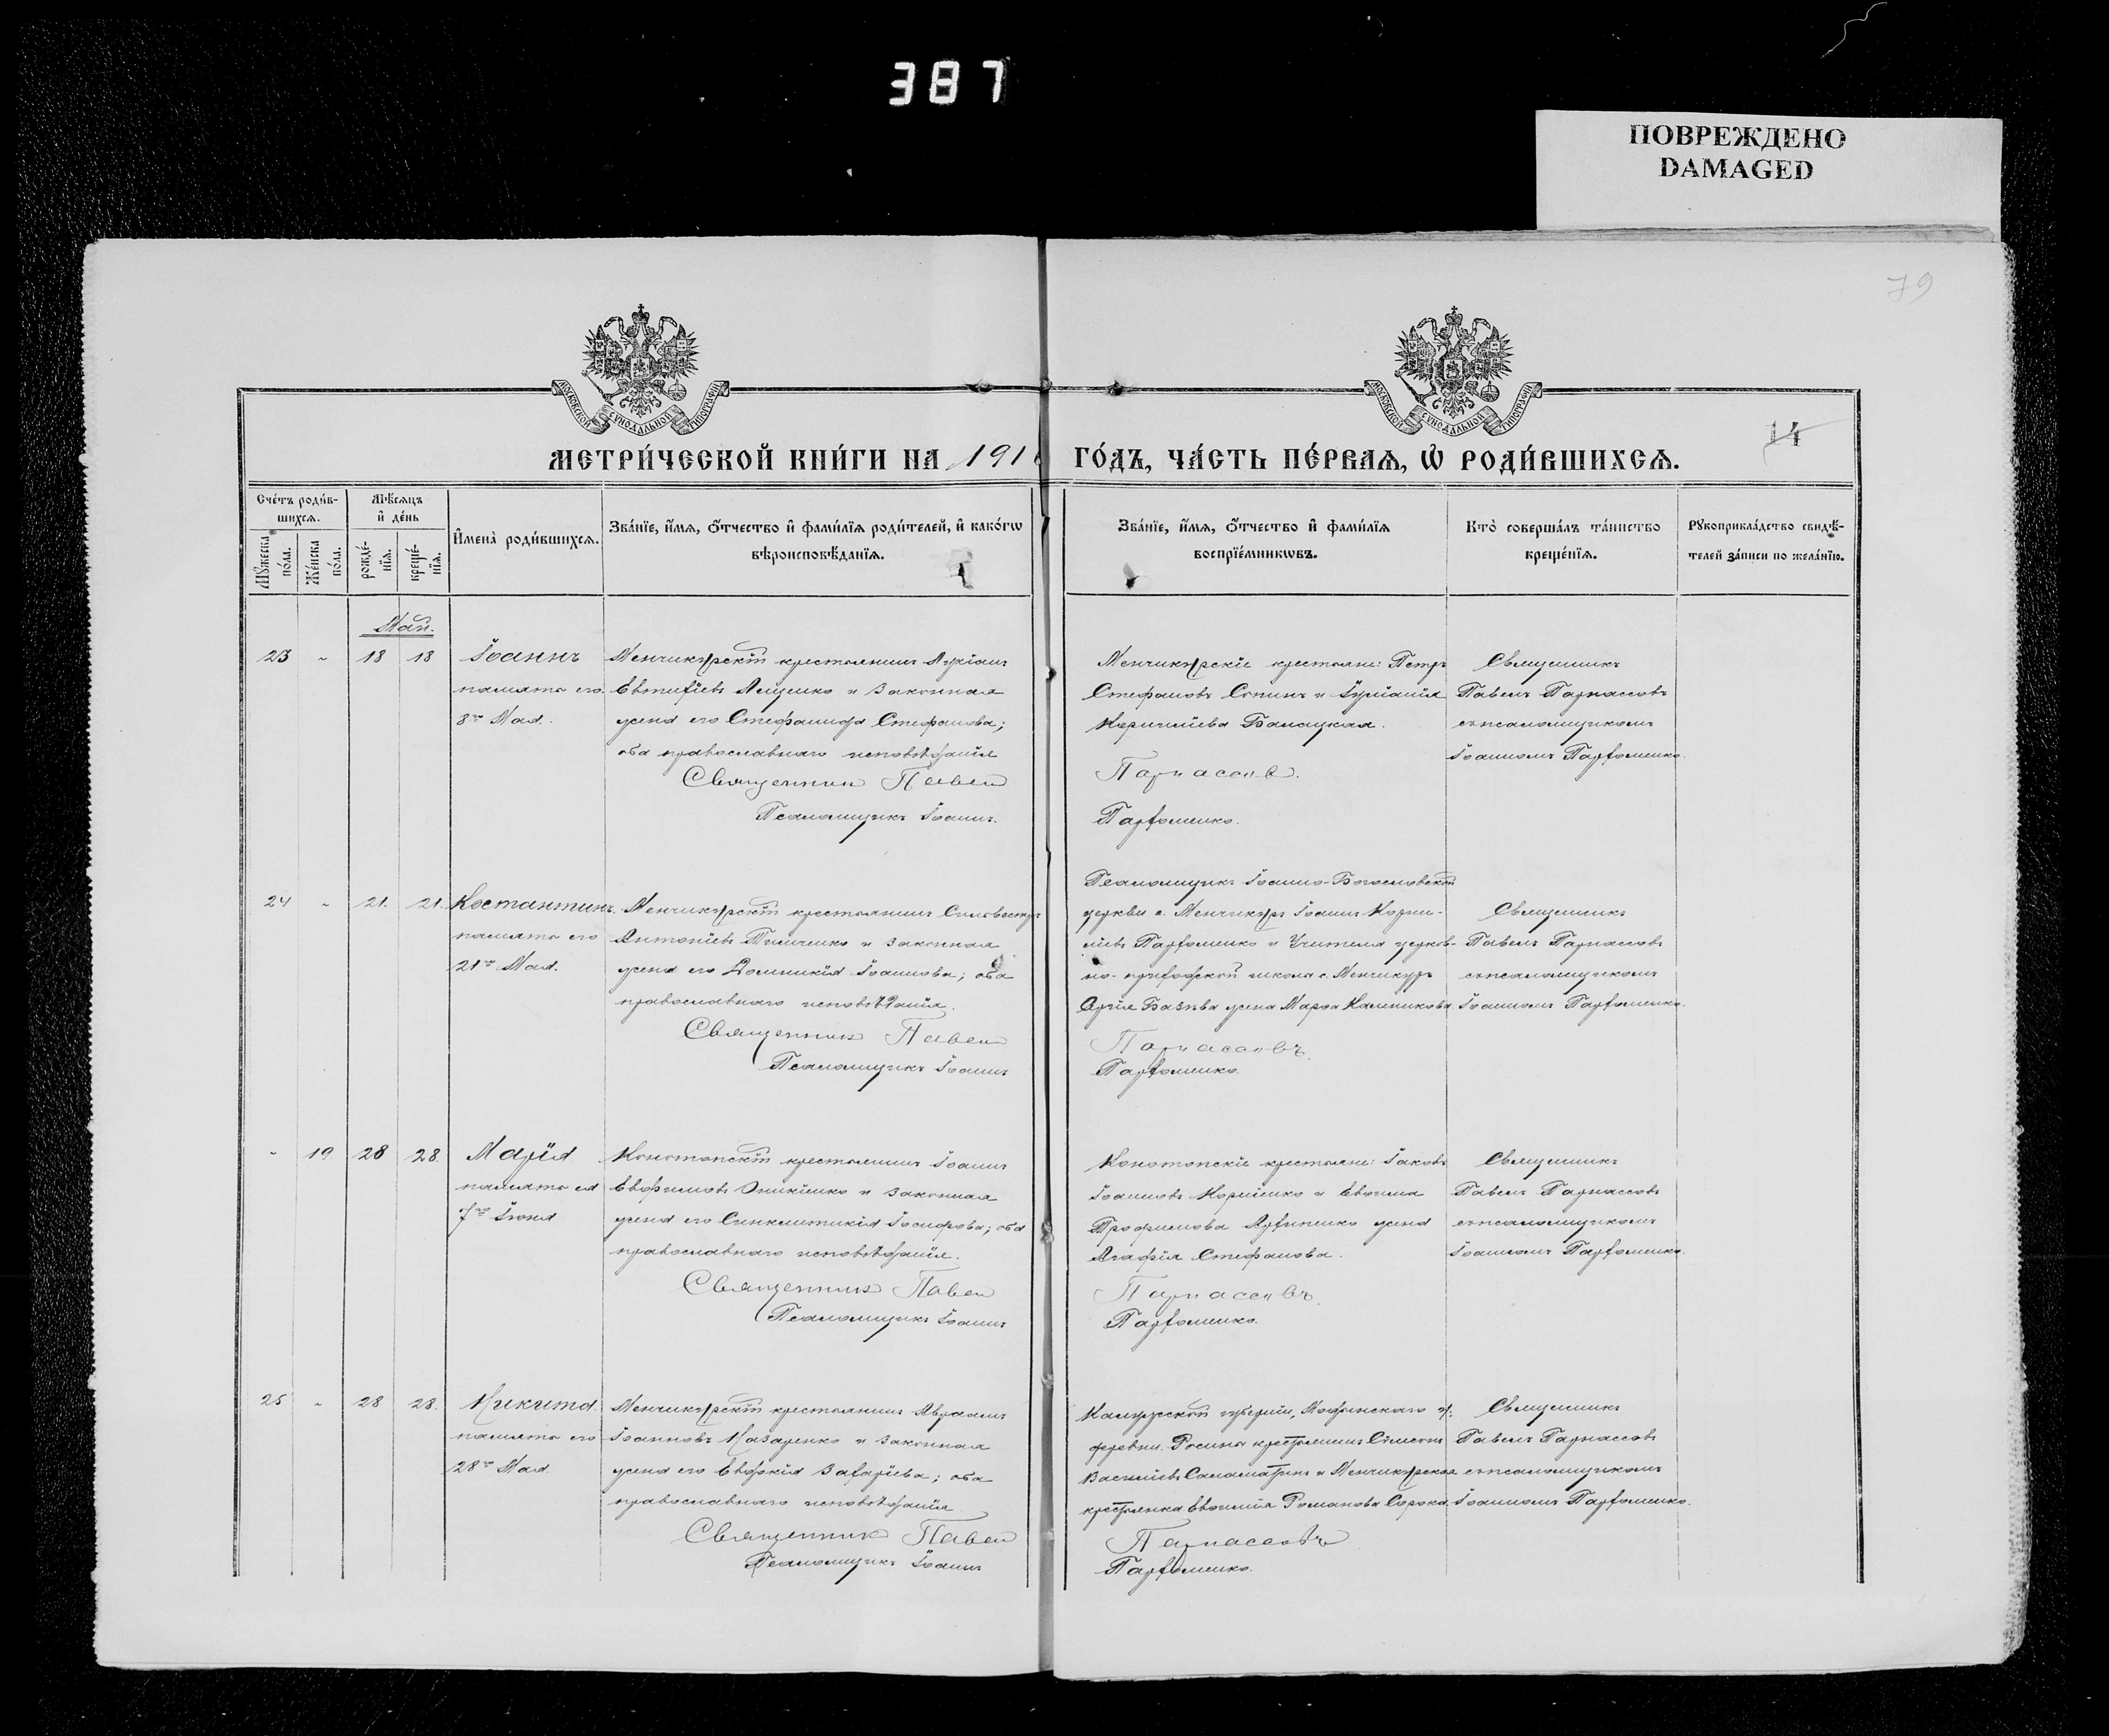 387
ПОВРЕЖДЕНО
DAMAGED
79
МОСКОВСКОЙ СѴНОДАЛЬНОЙ ТИПОГРАФІИ
МОСКОВСКОЙ СѴНОДАЛЬНОЙ ТИПОГРАФІИ
14
МЕТРИ́ЧЕСКОЙ КНИ́ГИ НА 191
ГО́ДЪ, ЧА́СТЬ ПЕ́РВАѦ, Ѿ РОДИ́ВШИХСѦ.
Сче́тъ роди́в-
шихсѧ.
Мѣ́сѧцъ
и҆ де́нь
Мꙋ́жеска по́ла.
Же́нска по́ла.
рожде́-
нїѧ.
креще́-
нїѧ.
И҆мена̀ роди́вшихсѧ.
Зва́нїе, и҆́мѧ, ѻ҆́тчество и҆ фами́лїѧ роди́телей, и҆ како́гѡ
вѣроисповѣ́данїѧ.
Зва́нїе, и҆́мѧ, ѻ҆́тчество и҆ фами́лїѧ
воспрїе́мникѡвъ.
Кто̀ соверша́лъ та́инство
креще́нїѧ.
Рꙋкоприкла́дство свидѣ́-
телей за́писи по жела́нїю.
Май.
23 - 18 18 Іоаннъ
память его
8го Мая.
Менчикурскій крестьянинъ
Евтихіевъ Лещенко и законная
жена его Стефанида Стефанова;
оба православнаго исповѣданія
Священник Павел
Псаломщикъ Іоаннъ.
Менчикурскіе крестьяне: Петръ
Стефановъ Сопинъ и Іуліанія
Корниліева Балацкая.
Парнассов.
Парфоменко.
Священникъ
Павелъ Парнассовъ
съ псаломщикомъ
Іоанномъ Парфоменко.
24 - 21. 21. Костантинъ.
память его
21го Мая.
Менчикурскій крестьянинъ Силовестръ
Антоніевъ Тимченко и законная
жена его Домникія Іоаннова; оба
православнаго исповѣданія.
Священник Павел
Псаломщикъ Іоаннъ
Псаломщикъ Іоанно-Богословской
церкви с. Менчикуръ Іоаннъ Корни-
ліевъ Парфоменко и Учителя церков-
но-приходской школы с. Менчикуръ
Сергія жена Марѳа Калиникова.
Парнасовъ.
Парфоменко.
Священникъ
Павелъ Парнассовъ
съ псаломщикомъ
Іоанномъ Парфоменко.
- 19 28 28. Марія
память ея
7го Іюня
Конотопскій крестьянинъ Іоаннъ
Евфимовъ Оникіенко и законная
жена его Синклитикія Іосифова; оба
православнаго исповѣданія.
Священник Павел
Псаломщикъ Іоаннъ
Конотопскіе крестьяне: Іаковъ
Іоанновъ Корніенко и Евѳима
Трофимова жена
Агафія Стефанова.
Парнассовъ.
Парфоменко.
Священникъ
Павелъ Парнассовъ
съ псаломщикомъ
Іоанномъ Парфоменко.
25 - 28 28. Никита.
память его
28го Мая.
Менчикурскій крестьянинъ Авраамъ
Іоанновъ Назаренко и законная
жена его Евдокія Захаріева; оба
православнаго исповѣданія.
Священник Павел
Псаломщикъ Іоаннъ
Калужской губерніи, Мосальскаго у.
деревни крестьянинъ Сѵмеонъ
Василіевъ Саламатинъ и Менчикурская
крестьянка Евѳимія Романова Сорока.
Парнассовъ
Парфоменко.
Священникъ
Павелъ Парнассовъ
съ псаломщикомъ
Іоанномъ Парфоменко.